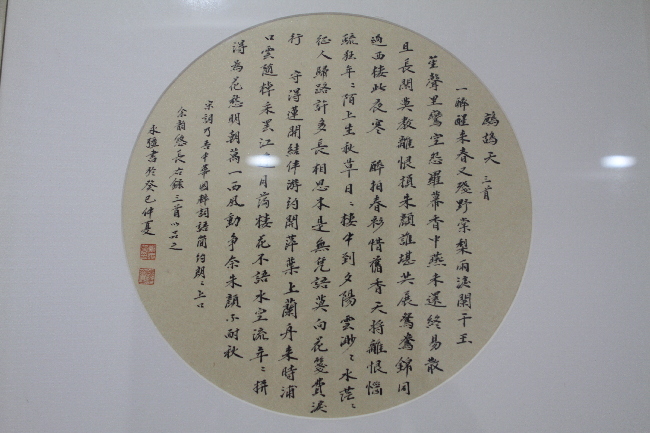 鷓鴣天 三首
一醉醒来春又殘野棠梨雨淚闌干玉
笙聲里鸞空怨羅幕香中燕未還終易散
且長閑莫教離恨損朱顏誰堪共展鴛鴦錦同
過西樓此夜寒 醉拍春衫惜舊香天將離恨惱
疏狂年〻陌上生秋草日〻樓中到夕陽雲渺〻水茫〻
征人歸路許多長相思本是無憑語莫向花箋費淚
行 守得蓮開結伴游約開萍葉上蘭舟来時浦
口雲隨棹采罷江邊月滿樓花不語水空流年〻拚
得為花愁明朝萬一西風動爭奈朱顏不耐秋
宋詞乃吾中華國粹詞語簡約朗〻上口
余韻悠長今錄三首以品之
書於癸巳仲夏